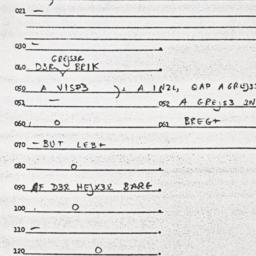 021 —
030 —
GREJSER
040 D3R BRIK
050 A VISP3 ), A INZL, GAD AGRUJS
051 — 052 A GREJS3 IN
060 O 061 BREG+
070 — BUT LEB+
080 O
090 AF D3R HEJX3R BARG
100 O
110 —
120 O